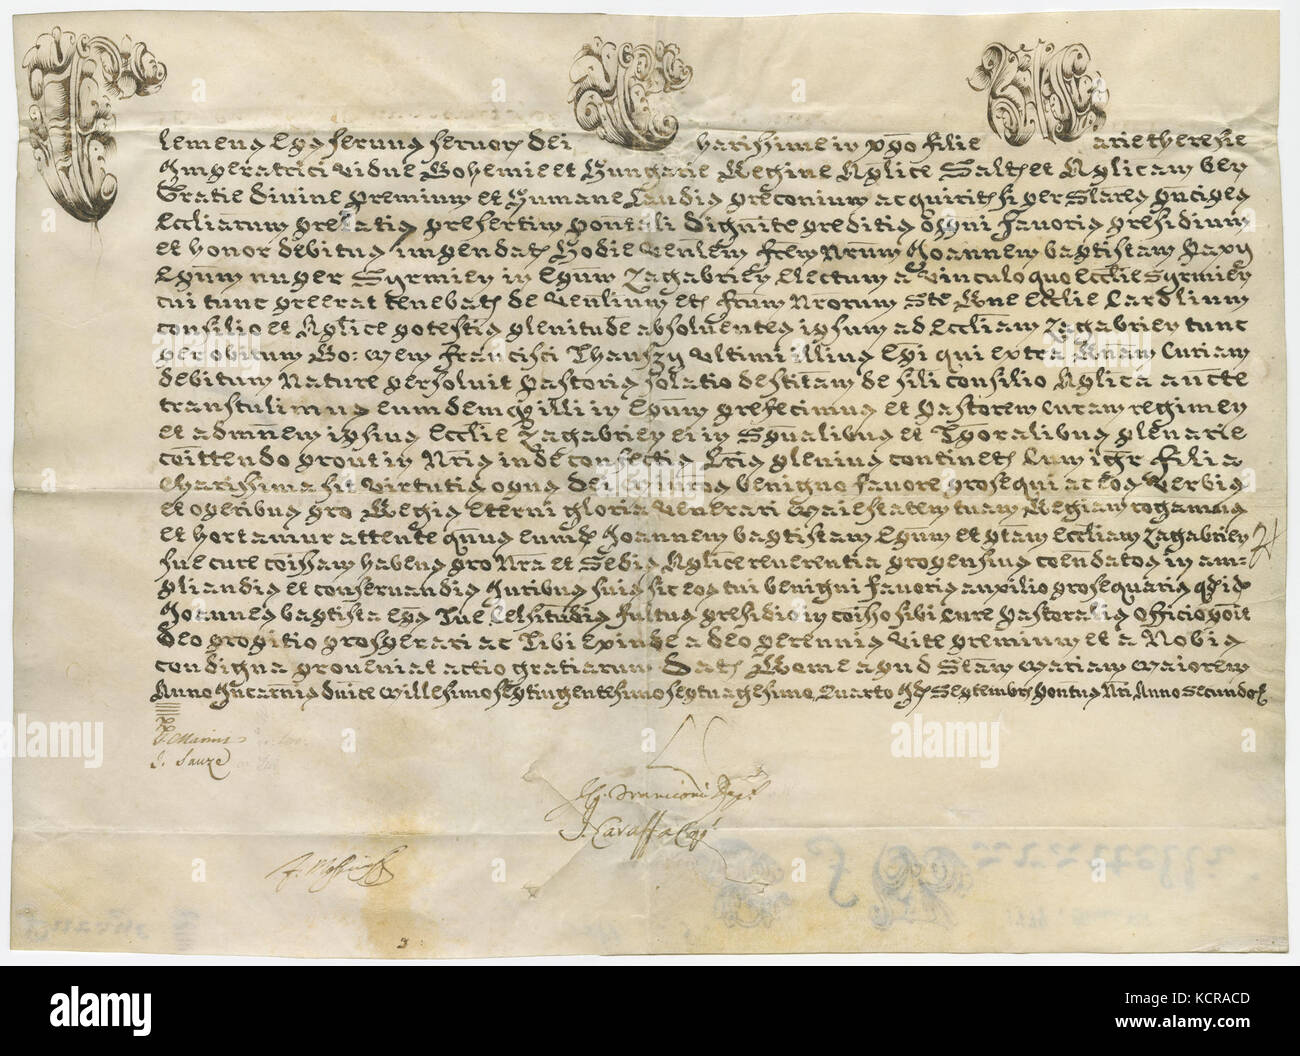 Clemens Eps servus servor. Dei Charissime in Xpo filie Marie Theresie
Imperatrici Vidue Bohemie et Hungarie Regine Aplice Saltem et Aplicam Ben
Gratie Divine premium et Humane Laudis preconium acquiritr. si per Seculares pncipes
Eccliarum prelatis presertim pontificali dignitate preditis opportuni favoris presidium
et honor debitus impendatr. Hodie Venlem frem nrum Joannem baptistam Paxy
Epum nuper Syrmien in Epum Zagabrien Electum a Vinculo quo Ecclie Syrmien
cui tunc preerat tenebatr. de Venlium etr. frum nrorum Ste Rne Ecclie Cardlium
consilio et Aplice potestis plenitude absolventes ipsum ad Eccliam Zagabrien tunc
per obitum Bo: Mem Francisci Thauszy Ultimi illius Epi qui extra Rnam Curiam
debitum Nature persolvit pastoris solatio destitam de sili consilio Aplica aucte
transtulimus eumdemq illi in Epum prefecimus et pastorem curam regimen
et admnem ipsius Ecclie Zagabrien ei in Spualibus et Tporalibus plenarie
coittendo prout in Nris inde confectis Lris plenius continetr. Cum igr Filia
Charissima sit Virtutis opus Dei Mintros benigno favore prosequi ac eos Verbis
et operibus pro Regis Eterni gloria Venerari Maiestatem tuam Regiam rogamus
et hortamur attente qtnus eumd. Joannem baptistam Epum et ptam Eccliam Zagabrien
sue cure coissam habens pro Nra et Sedis Aplice reverentia propensius coendatos in am=
pliandis et conservandis Juribus suis sic eos tui benigni favoris auxilio prosequaris qd id.
Joannes baptista Eps Tue Celsitudis fultus presidio in coisso sibi Cure Pastoralis officio poit
Deo propitio prosperari ac Tibi Exinde a Deo perennis Vite premium et a Nobis
condigna proveniat actio gratiarum Datr. Rome apud Stam Mariam Maiorem
Anno Incarnis Dnice Millesimo Septingentesimo Septuagesimo Quarto Id. Septembrs Pontus Nri Anno Secundo
P. Marius
J. Sauze
J. Caraffa
3
alamy
Image ID: KCRACD
www.alamy.com